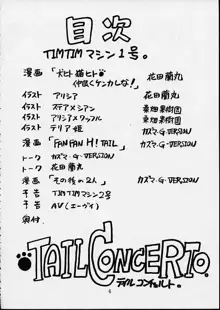 目次
TIMTIMマシン1号。
漫画 「犬ヒト猫ヒト 花田蘭丸
仲良くケンカしな!」
イラスト アリシア 花田蘭丸
イラスト ステア×シアン 桑畑果樹園
イラスト アリシア×ワッフル 桑畑果樹園
イラスト テリア姫 カズマ・G-VERSION
漫画 「FANFAN H! TAIL」 カズマ・G-VERSION
トーク カズマ・G-VERSION
トーク 花田蘭丸
漫画 「その後の2人」 カズマ・G-VERSION
予告 TIMTIMマシン2号
予告 AV(エーヴイ)
奥付
TAIL CONCERTO
テイルコンチェルト。